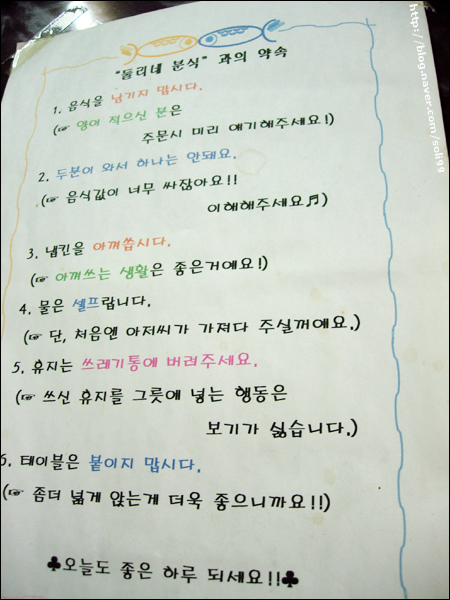 "둘리네 분식" 과의 약속
1. 음식을 남기지 맙시다.
(☞ 양이 적으신 분은
주문시 미리 얘기해주세요!)
2. 두분이 와서 하나는 안돼요.
(☞ 음식값이 너무 싸잖아요!!
이해해주세요♬)
3. 냅킨을 아껴씁시다.
(☞ 아껴쓰는 생활은 좋은거에요!)
4. 물은 셀프랍니다.
(☞ 단, 처음엔 아저씨가 가져다 주실꺼에요.)
5. 휴지는 쓰레기통에 버려주세요.
(☞ 쓰신 휴지를 그릇에 넣는 행동은
보기가 싫습니다.)
6. 테이블은 붙이지 맙시다.
(☞ 좀더 넓게 앉는게 더욱 좋으니까요!!)
♣오늘도 좋은 하루 되세요!!♣
http://blog.naver.com/soli99